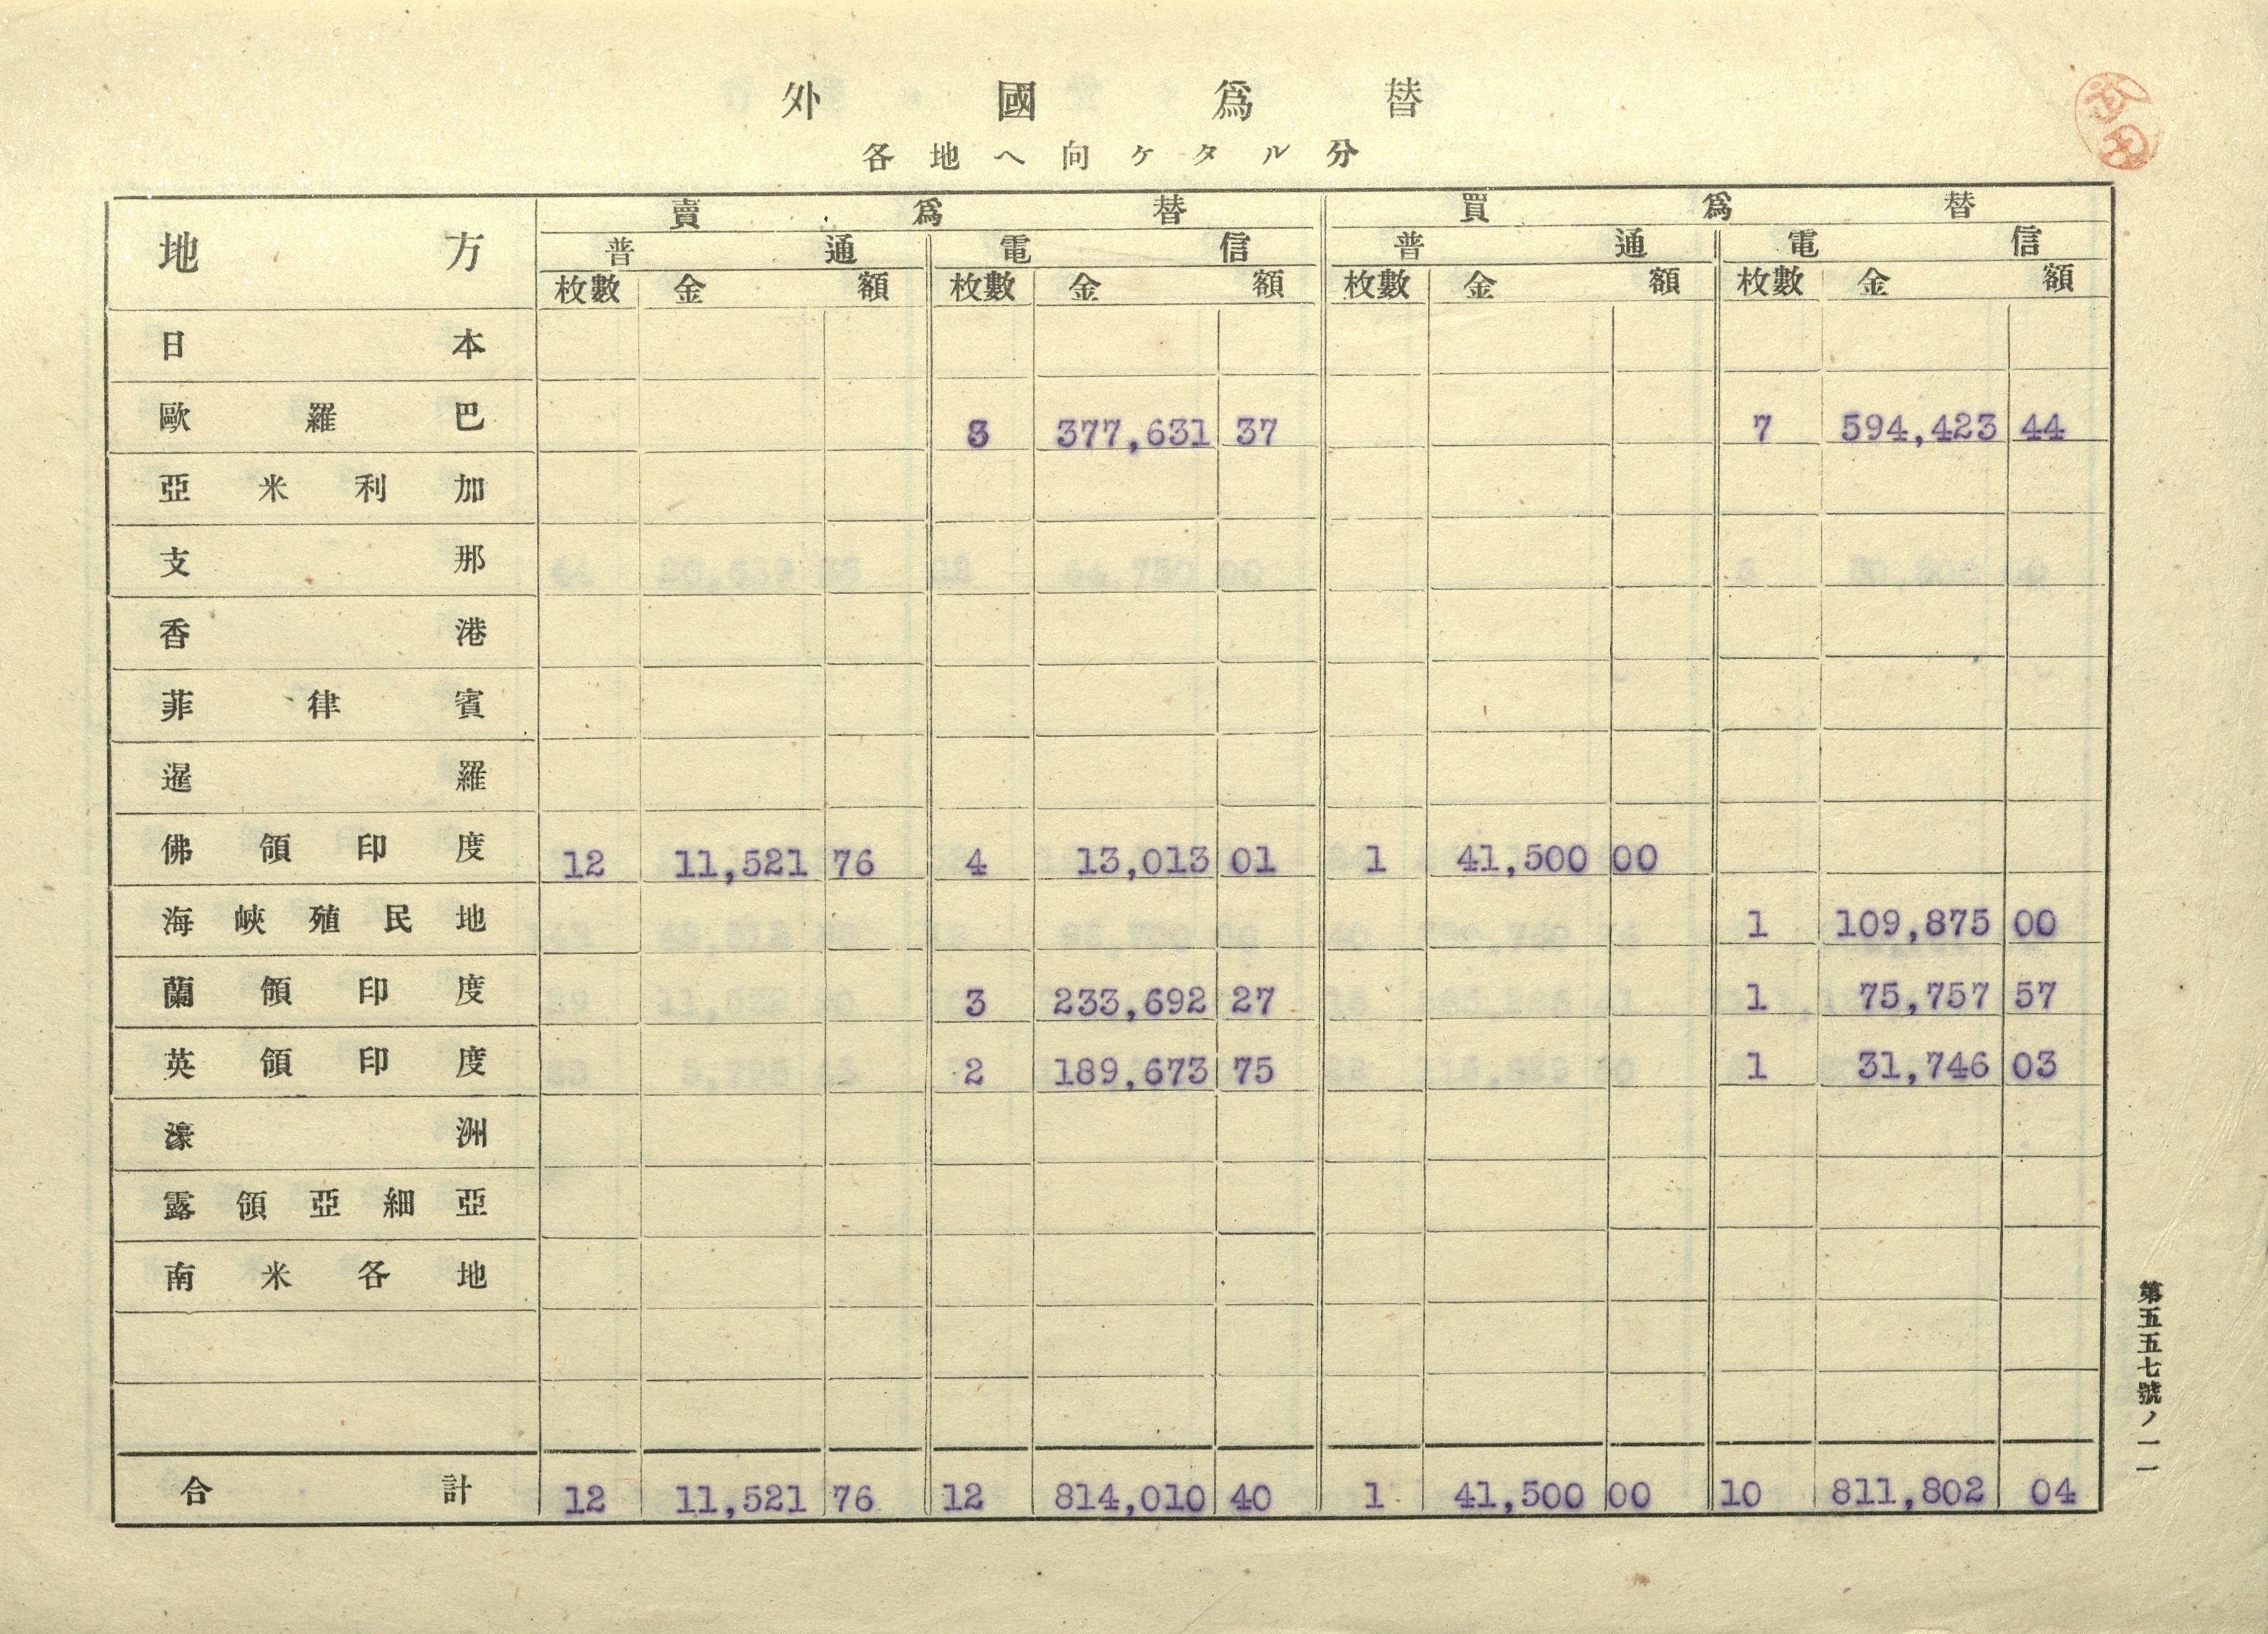 外國爲替
各地へ向ケタル分
地方 賣爲替 買爲替
普通 電信 普通 電信
枚數 金額 枚數 金額 枚數 金額 枚數 金額
日本
歐羅巴 3 377,631 37 7 594,423 44
亞米利加
支那
香港
菲律賓
暹羅
佛領印度 12 11,521 76 4 13,013 01 1 41,500 00
海峽殖民地 1 109,875 00
蘭領印度 3 233,692 27 1 75,757 57
英領印度 2 189,673 75 1 31,746 03
濠洲
露領亞細亞
南米各地
合計 12 11,521 76 12 814,010 40 1 41,500 00 10 811,802 04
第五五七號ノ一一